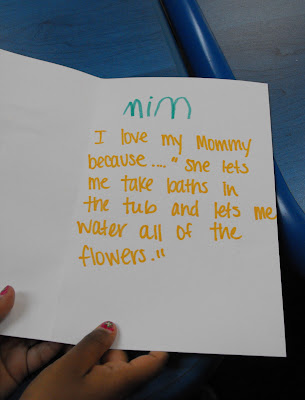 nim
I love my Mommy
because...." she lets
me take baths in
the tub and lets me
water all of the
flowers."